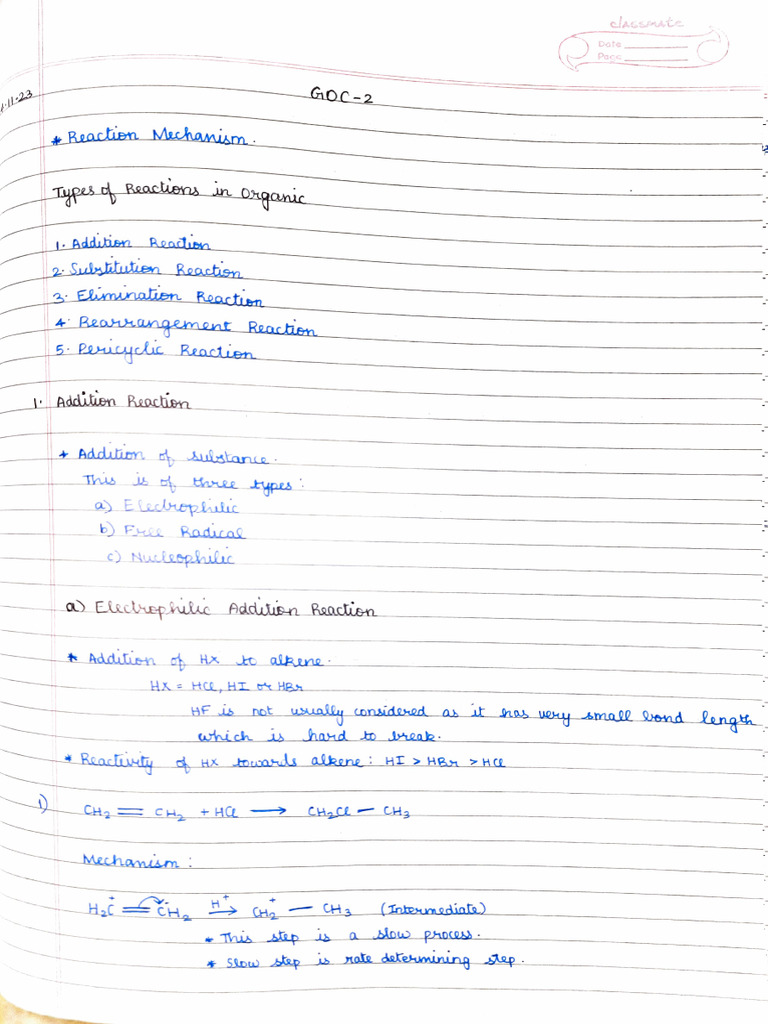 classmate
Date
Page
.11.23
GOC-2
* Reaction Mechanism.
Types of Reactions in Organic
1. Addition Reaction
2. Substitution Reaction
3. Elimination Reaction
4. Rearrangement Reaction
5. Pericyclic Reaction
1. Addition Reaction
* Addition of substance.
This is of three types:
a) Electrophilic
b) Free Radical
c) Nucleophilic
a) Electrophilic Addition Reaction
* Addition of HX to alkene.
HX = HCl, HI or HBr
HF is not usually considered as it has very small bond length
which is hard to break.
* Reactivity of HX towards alkene: HI > HBr > HCl
1) CH₂ = CH₂ + HCl → CH₂Cl – CH₃
Mechanism:
H₂C⁺ = C̄H₂ H⁺→ CH₂⁺ – CH₃ (Intermediate)
* This step is a slow process.
* Slow step is rate determining step.